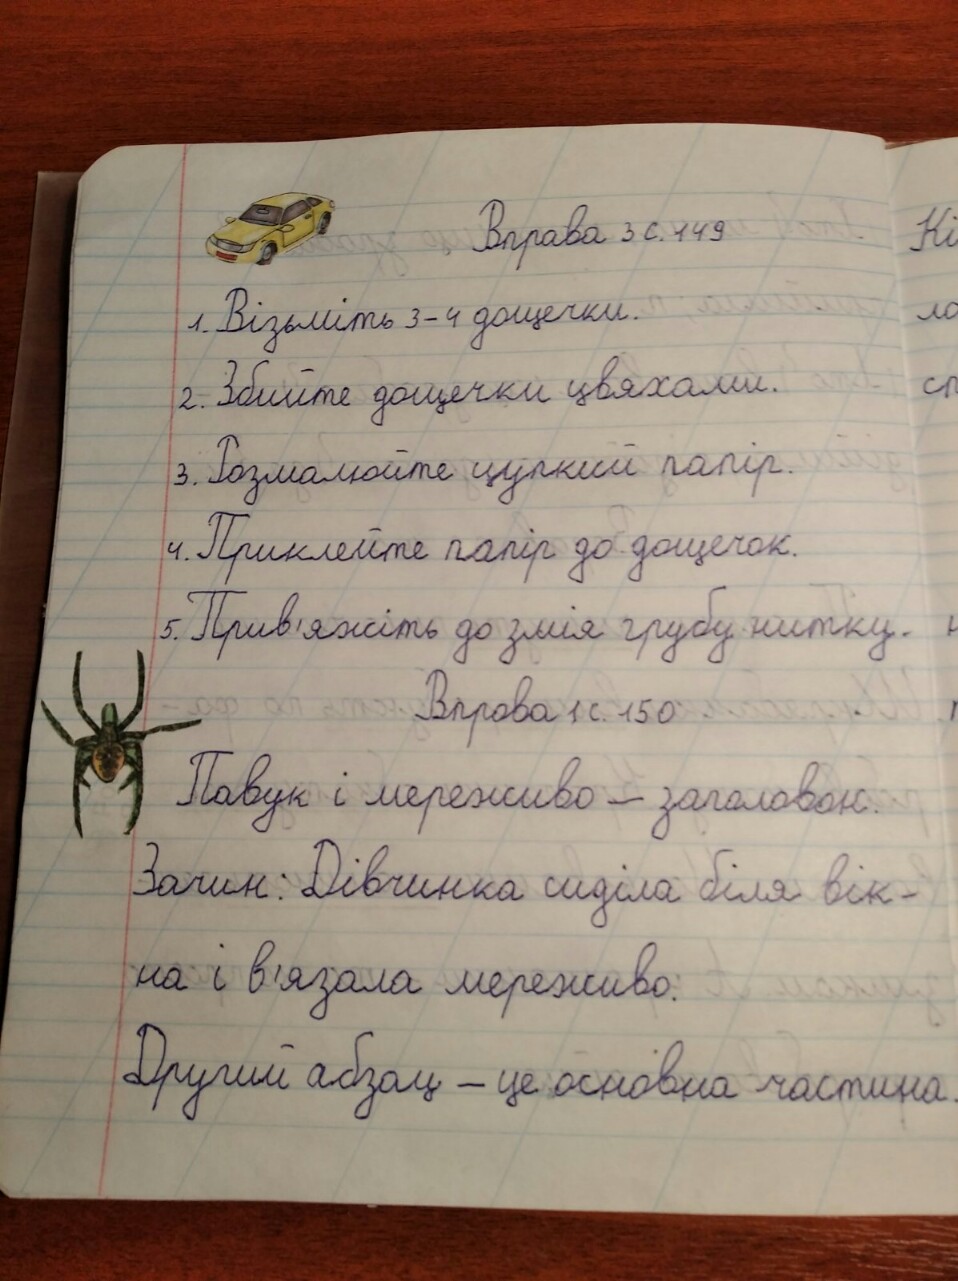 Вправа 3 с. 149
1. Візьміть 3-4 дощечки.
2. Збийте дощечки цвяхами.
3. Розмалюйте цупкий папір.
4. Приклейте папір до дощечок.
5. Прив'яжіть до змія грубу нитку.
Вправа 1 с. 150
Павук і мереживо – заголовок.
Зачин: Дівчинка сиділа біля вік-
на і в'язала мереживо.
Другий абзац – це основна частина.